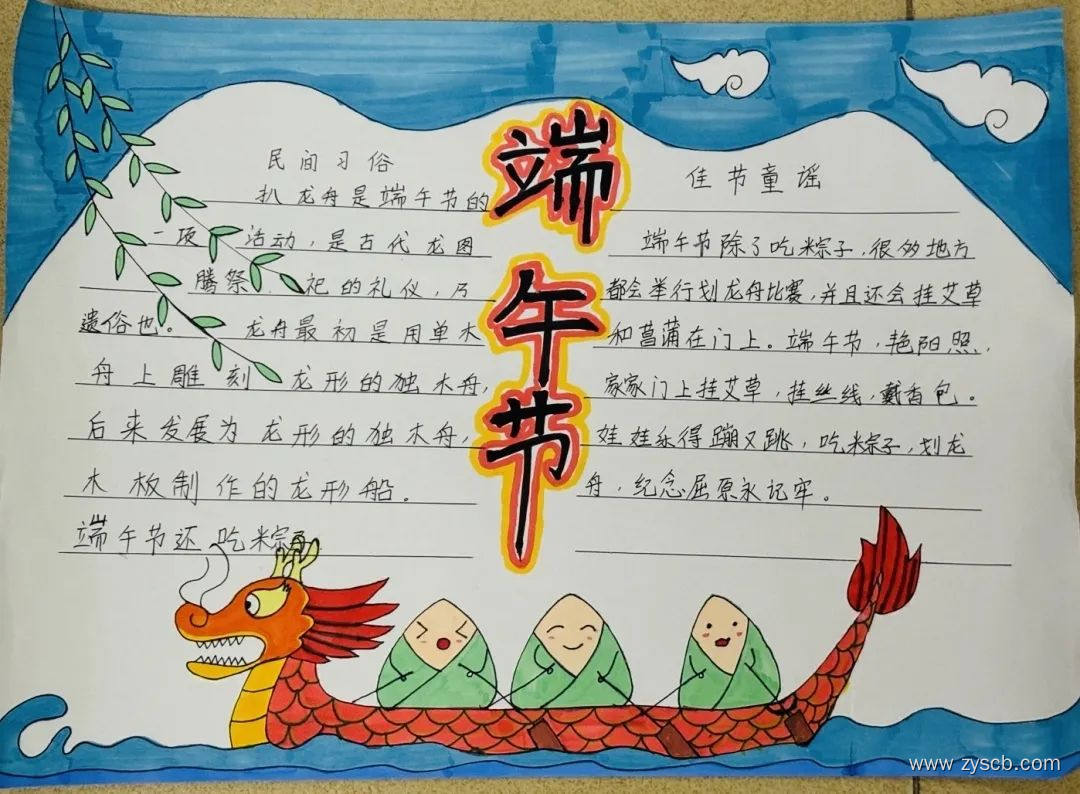 端午节
民间习俗
扒龙舟是端午节的
一项活动，是古代龙图
腾祭祀的礼仪，乃
遗俗也。龙舟最初是用单木
舟上雕刻龙形的独木舟，
后来发展为龙形的独木舟，
木板制作的龙形船。
端午节还吃粽
佳节童谣
端午节除了吃粽子，很多地方
都会举行划龙舟比赛，并且还会挂艾草
和菖蒲在门上。端午节，艳阳照，
家家门上挂艾草，挂丝线，戴香包。
娃娃乐得蹦又跳，吃粽子，划龙
舟，纪念屈原永记牢。
www.zyscb.com